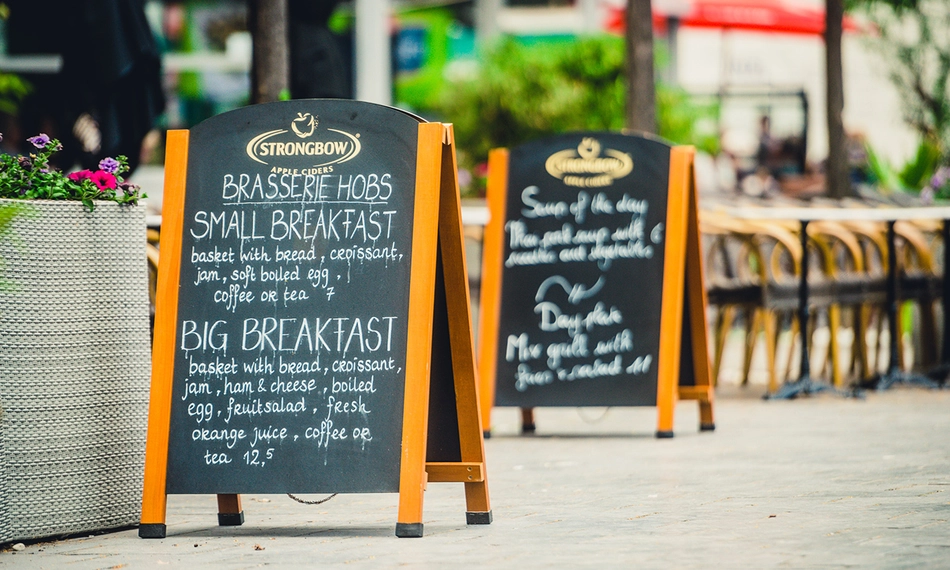 STRONGBOW
APPLE CIDERS
BRASSERIE HOBS
SMALL BREAKFAST
basket with bread, croissant,
jam, soft boiled egg,
coffee or tea 7
BIG BREAKFAST
basket with bread, croissant,
jam, ham & cheese, boiled
egg, fruitsalad, fresh
orange juice, coffee or
tea 12,5
STRONGBOW
Soup of the day
soup with
noodles and vegetables
Day plate
Mix grill with